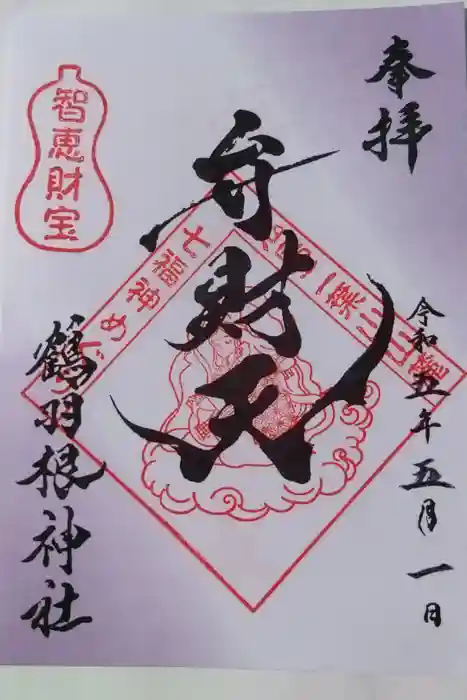 奉拝
令和五年 五月一日
二葉山山麓
弁財天
七福神めぐり
智恵財宝
鶴羽根神社